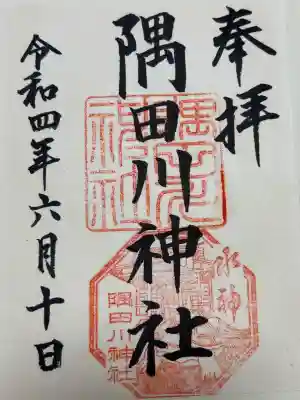 奉拝
隅田川神社
令和四年六月十日
水神
隅田川神社